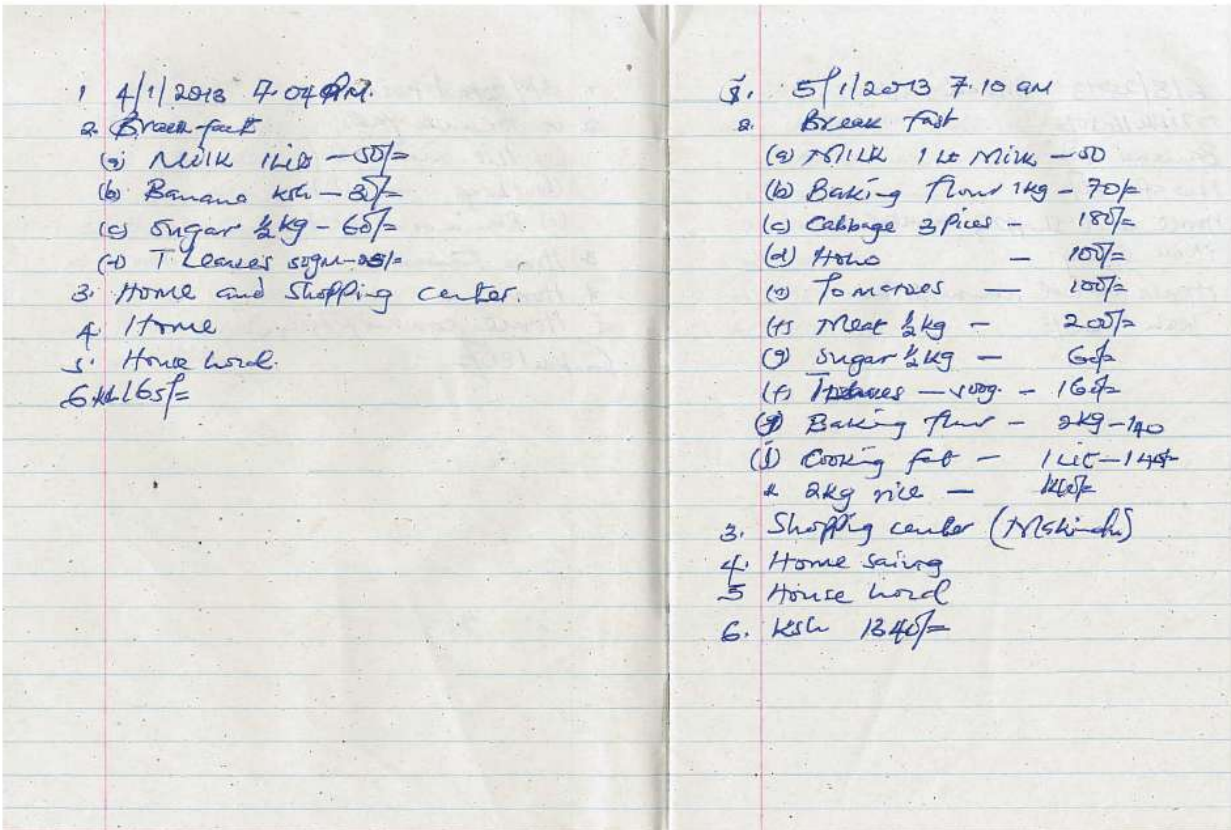 1 4/1/2013 7.04 AM.
2. Break fast
(a) Milk 1Lit - 50/=
(b) Banana ksh - 30/=
(c) Sugar ½ kg - 60/=
(d) T Leaves 50gm - 25/=
3. Home and Shopping center.
4. Home
5. House hord.
6 ksh 165/=
1. 5/1/2013 7.10 am
2. Break fast
(a) MILK 1 Lt Milk - 50
(b) Baking flour 1kg - 70/=
(c) Cabbage 3 Pices - 180/=
(d) Hoho - 100/=
(e) Tomatoes - 100/=
(f) Meat ½ kg - 200/=
(g) Sugar ½ kg - 60/=
(f) Tleaves - 500g. - 160/=
(g) Baking flour - 2kg - 140
(j) Cooking fat - 1 Lit - 140/=
k 2kg rice - 140/=
3. Shopping center
4. Home saivg
5 House hord
6. Ksh 1340/=